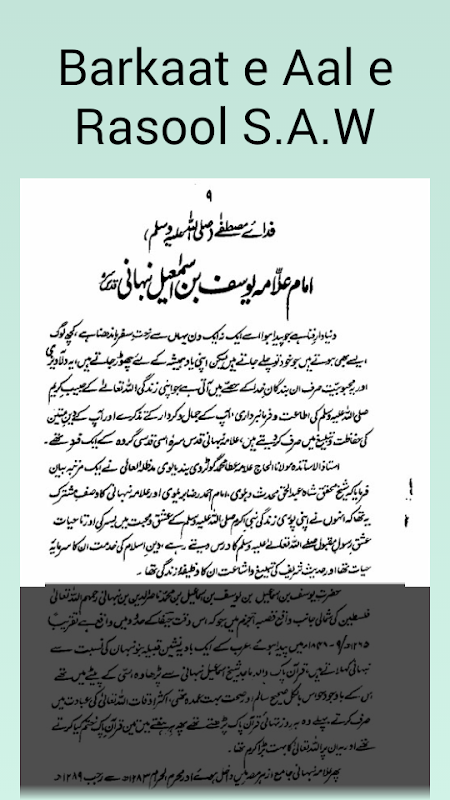 Barkaat e Aal e
Rasool S.A.W
۹
فدائے مصطفےٰ (صلی اللہ علیہ وسلم)
امام علّامہ یوسف بن اسمٰعیل نبہانی قدس سرہ
دنیا دارِ فنا ہے جو پیدا ہوا اسے ایک نہ ایک دن یہاں سے رختِ سفر باندھنا ہے، کچھ لوگ
ایسے بھی ہوتے ہیں جو خود تو چلے جاتے ہیں لیکن اپنی یاد ہمیشہ کے لئے چھوڑ جاتے ہیں، یہ دلآویزی
اور محبوبیت صرف ان بندگانِ خدا کے حصّے میں آتی ہے جو اپنی زندگی اللہ تعالیٰ کے حبیبِ کریم
صلی اللہ علیہ وسلم کی اطاعت و فرمانبرداری، آپ کے جمال و کردار کے تذکرے اور آپ کے دینِ متین
کی حفاظت و تبلیغ میں صرف کر دیتے ہیں، علامہ نبہانی قدس سرہ اسی قدسی گروہ کے ایک فرد تھے۔
استاذ الاساتذہ مولانا الحاج علامہ عطا محمد گولڑوی بندیالوی مدظلہ العالی نے ایک مرتبہ بیان
فرمایا کہ شیخ محقق شاہ عبدالحق محدث دہلوی، امام احمد رضا بریلوی اور علامہ نبہانی کا وصف مشترک
یہ تھا کہ انہوں نے اپنی پوری زندگی نبی اکرم صلی اللہ علیہ وسلم کے عشق و محبت میں بسر کی اور تا حیات
عشقِ رسولِ مقبول صلی اللہ تعالیٰ علیہ وسلم کا درس دیتے رہے، دینِ اسلام کی خدمت ان کا سرمایہ
حیات تھا اور حدیث شریف کی تبلیغ و اشاعت ان کا وظیفۂ زندگی تھا۔
حضرت یوسف بن اسمٰعیل بن یوسف بن اسمٰعیل بن محمد ناصر الدین نبہانی رحمہم اللہ تعالیٰ
فلسطین کی شمالی جانب واقع قصبہ اجزم میں جو کہ اس وقت حیفا کے حدود میں واقع ہے تقریباً
میں پیدا ہوئے عرب کے ایک بادیہ نشین قبیلہ بنو نبہان کی نسبت سے
نبہانی کہلاتے ہیں، قرآن پاک والد ماجد شیخ اسمٰعیل نبہانی سے پڑھا وہ اسّی کے پیٹے میں تھے
اس کے باوجود حواس بالکل صحیح سالم اور صحت بہت عمدہ تھی، اکثر اوقات اللہ تعالیٰ کی عبادت میں
صرف کرتے، پہلے وہ ہر روز تہائی قرآن پاک پڑھتے تھے پھر ہر ہفتے میں تین قرآن پاک ختم کیا کرتے
تھے اور یہ ان پر اللہ تعالیٰ کا بہت بڑا کرم تھا۔
پھر علامہ نبہانی جامع ازہر مصر میں داخل ہوئے اور محرم الحرام ۱۲۸۳ھ سے رجب ۱۲۸۹ھ